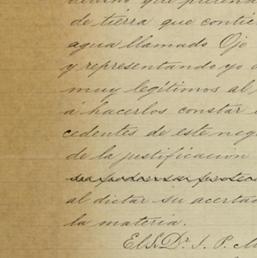 de tierra que contie
agua llamado Ojo
y representando yo
muy legitimos al
á hacerlos constar
cedentes de este neg
de la justificacion
al dictar su acertad
la materia.
El S. D. J. P.